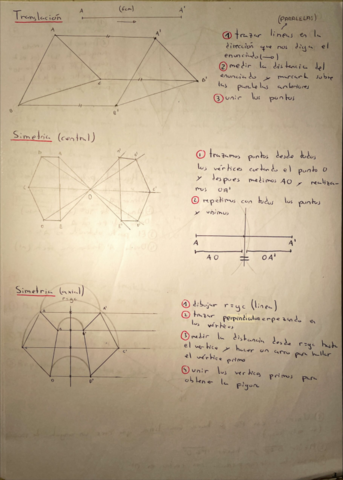 Translación
A (6cm) A'
(PARALELAS)
① trazar lineas en la
dirección que nos diga el
enunciado
② medir la distancia del
enunciado y marcarla sobre
las paralelas anteriores
③ unir los puntos
A A'
B'
D
Simetria (central)
① trazamos puntos desde todos
los vértices cortando el punto O
y despues medimos AO y
mos OA'
② repetimos con todos los puntos
y unimos
O
A A'
AO = OA'
Simetria (axial)
raya
① dibujar raya (linea)
② trazar perpendiculares empezando en
los vértices
③ medir la distancia desde raya hasta
el vertice y hacer un arco para hallar
el vértice prima
④ unir los vertices primas para
obtener la figura